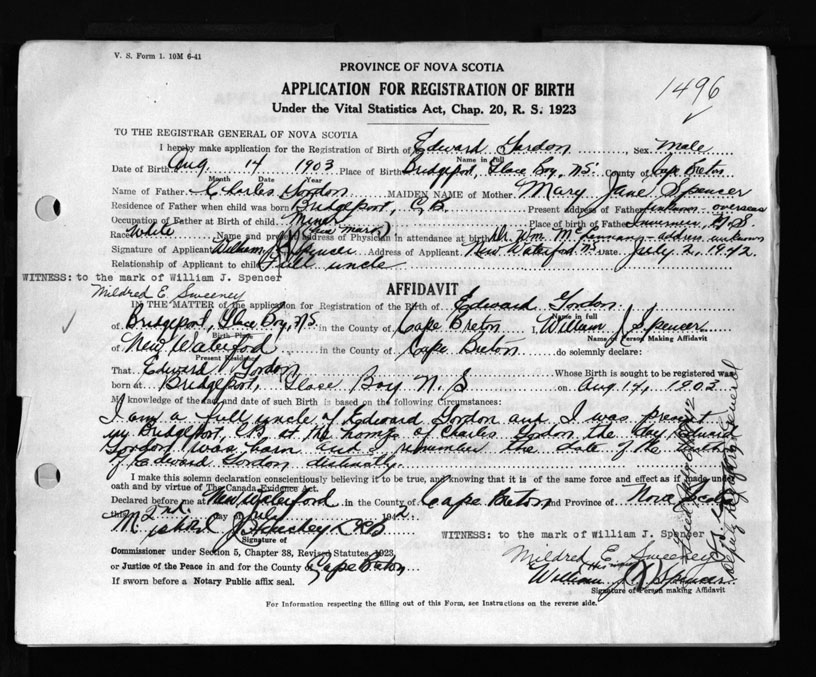 V. S. Form 1. 10M 6-41
PROVINCE OF NOVA SCOTIA
APPLICATION FOR REGISTRATION OF BIRTH
Under the Vital Statistics Act, Chap. 20, R. S. 1923
1496
TO THE REGISTRAR GENERAL OF NOVA SCOTIA
I hereby make application for the Registration of Birth of Edward Gordon Sex Male
Name in full
Date of Birth Aug. 14 1903 Place of Birth Bridgeport, Glace Bay, N.S. County of Cape Breton
Month Date Year
Name of Father Charles Gordon MAIDEN NAME of Mother Mary Jane Spencer
Residence of Father when child was born Bridgeport, C.B. Present address of Father overseas
Occupation of Father at Birth of child Miner Place of birth of Father
Race White Name and present address of Physician in attendance at birth Dr. Wm. address unknown
Signature of Applicant William J. X Spencer (his mark) Address of Applicant New Waterford N.S. Date July 2, 1942.
Relationship of Applicant to child Full uncle
WITNESS: to the mark of William J. Spencer
Mildred E. Sweeney
AFFIDAVIT
IN THE MATTER of the application for Registration of the Birth of Edward Gordon
Name in full
of Bridgeport, Glace Bay, N.S. in the County of Cape Breton I, William J. Spencer
Birth Place Name of Person Making Affidavit
of New Waterford in the County of Cape Breton do solemnly declare:
Present Residence
That Edward Gordon Whose Birth is sought to be registered was
born at Bridgeport, Glace Bay N. S on Aug. 14, 1903
My knowledge of the fact and date of such Birth is based on the following Circumstances:
I am a full uncle of Edward Gordon and I was present
in Bridgeport, C.B. at the home of Charles Gordon the day Edward
Gordon was born and I remember the date of the birth
of Edward Gordon distinctly.
I make this solemn declaration conscientiously believing it to be true, and knowing that it is of the same force and effect as if made under
oath and by virtue of The Canada Evidence Act.
Declared before me at New Waterford in the County of Cape Breton and Province of Nova Scotia
this 2nd day of July 1942.
Signature of
Commissioner under Section 5, Chapter 38, Revised Statutes, 1923
or Justice of the Peace in and for the County of Cape Breton
If sworn before a Notary Public affix seal.
WITNESS: to the mark of William J. Spencer
Mildred E. Sweeney
William J. X Spencer (his mark)
Signature of Person making Affidavit
Deputy Registrar General
For Information respecting the filling out of this Form, see Instructions on the reverse side.